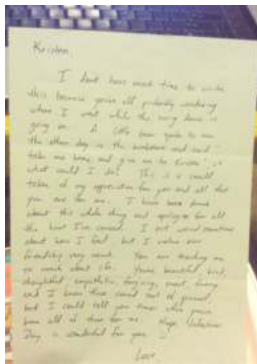 Kristen,
I don't have much time to write
this because you're all probably wondering
where I went while the song dance is
going on. A little bear spoke to me
the other day in the bookstore and said "
take me home and give me to Kristen", so
what could I do! This is a small
token of my appreciation for you and all that
you are for me. I have been
about this whole thing and apologize for all
the hurt I've caused. I get weird sometimes
about how I feel but I value our
friendship very much. You are teaching me
so much about life. You're beautiful, kind,
thoughtful, empathetic, forgiving, sweet, funny,
and I know these sound sort of general,
but I could tell you times when you've
been all of them for me. Hope Valentines
Day is wonderful for you :)
Love,